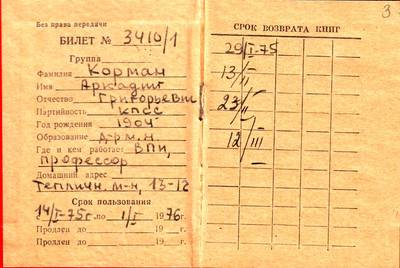 Без права передачи
БИЛЕТ № 3410/1
Группа
Фамилия Корман
Имя Аркадий
Отчество Григорьевич
Партийность КПСС
Год рождения 1904
Образование д-р м.н.
Где и кем работает ВПИ,
профессор
Домашний адрес
Тепличн. м-н, 13-12
Срок пользования
14/I-75г. по 1/I 1976г.
Продлен до 19 г.
Продлен до 19 г.
3
СРОК ВОЗВРАТА КНИГ
29/I-75
13/II
23/II
12/III